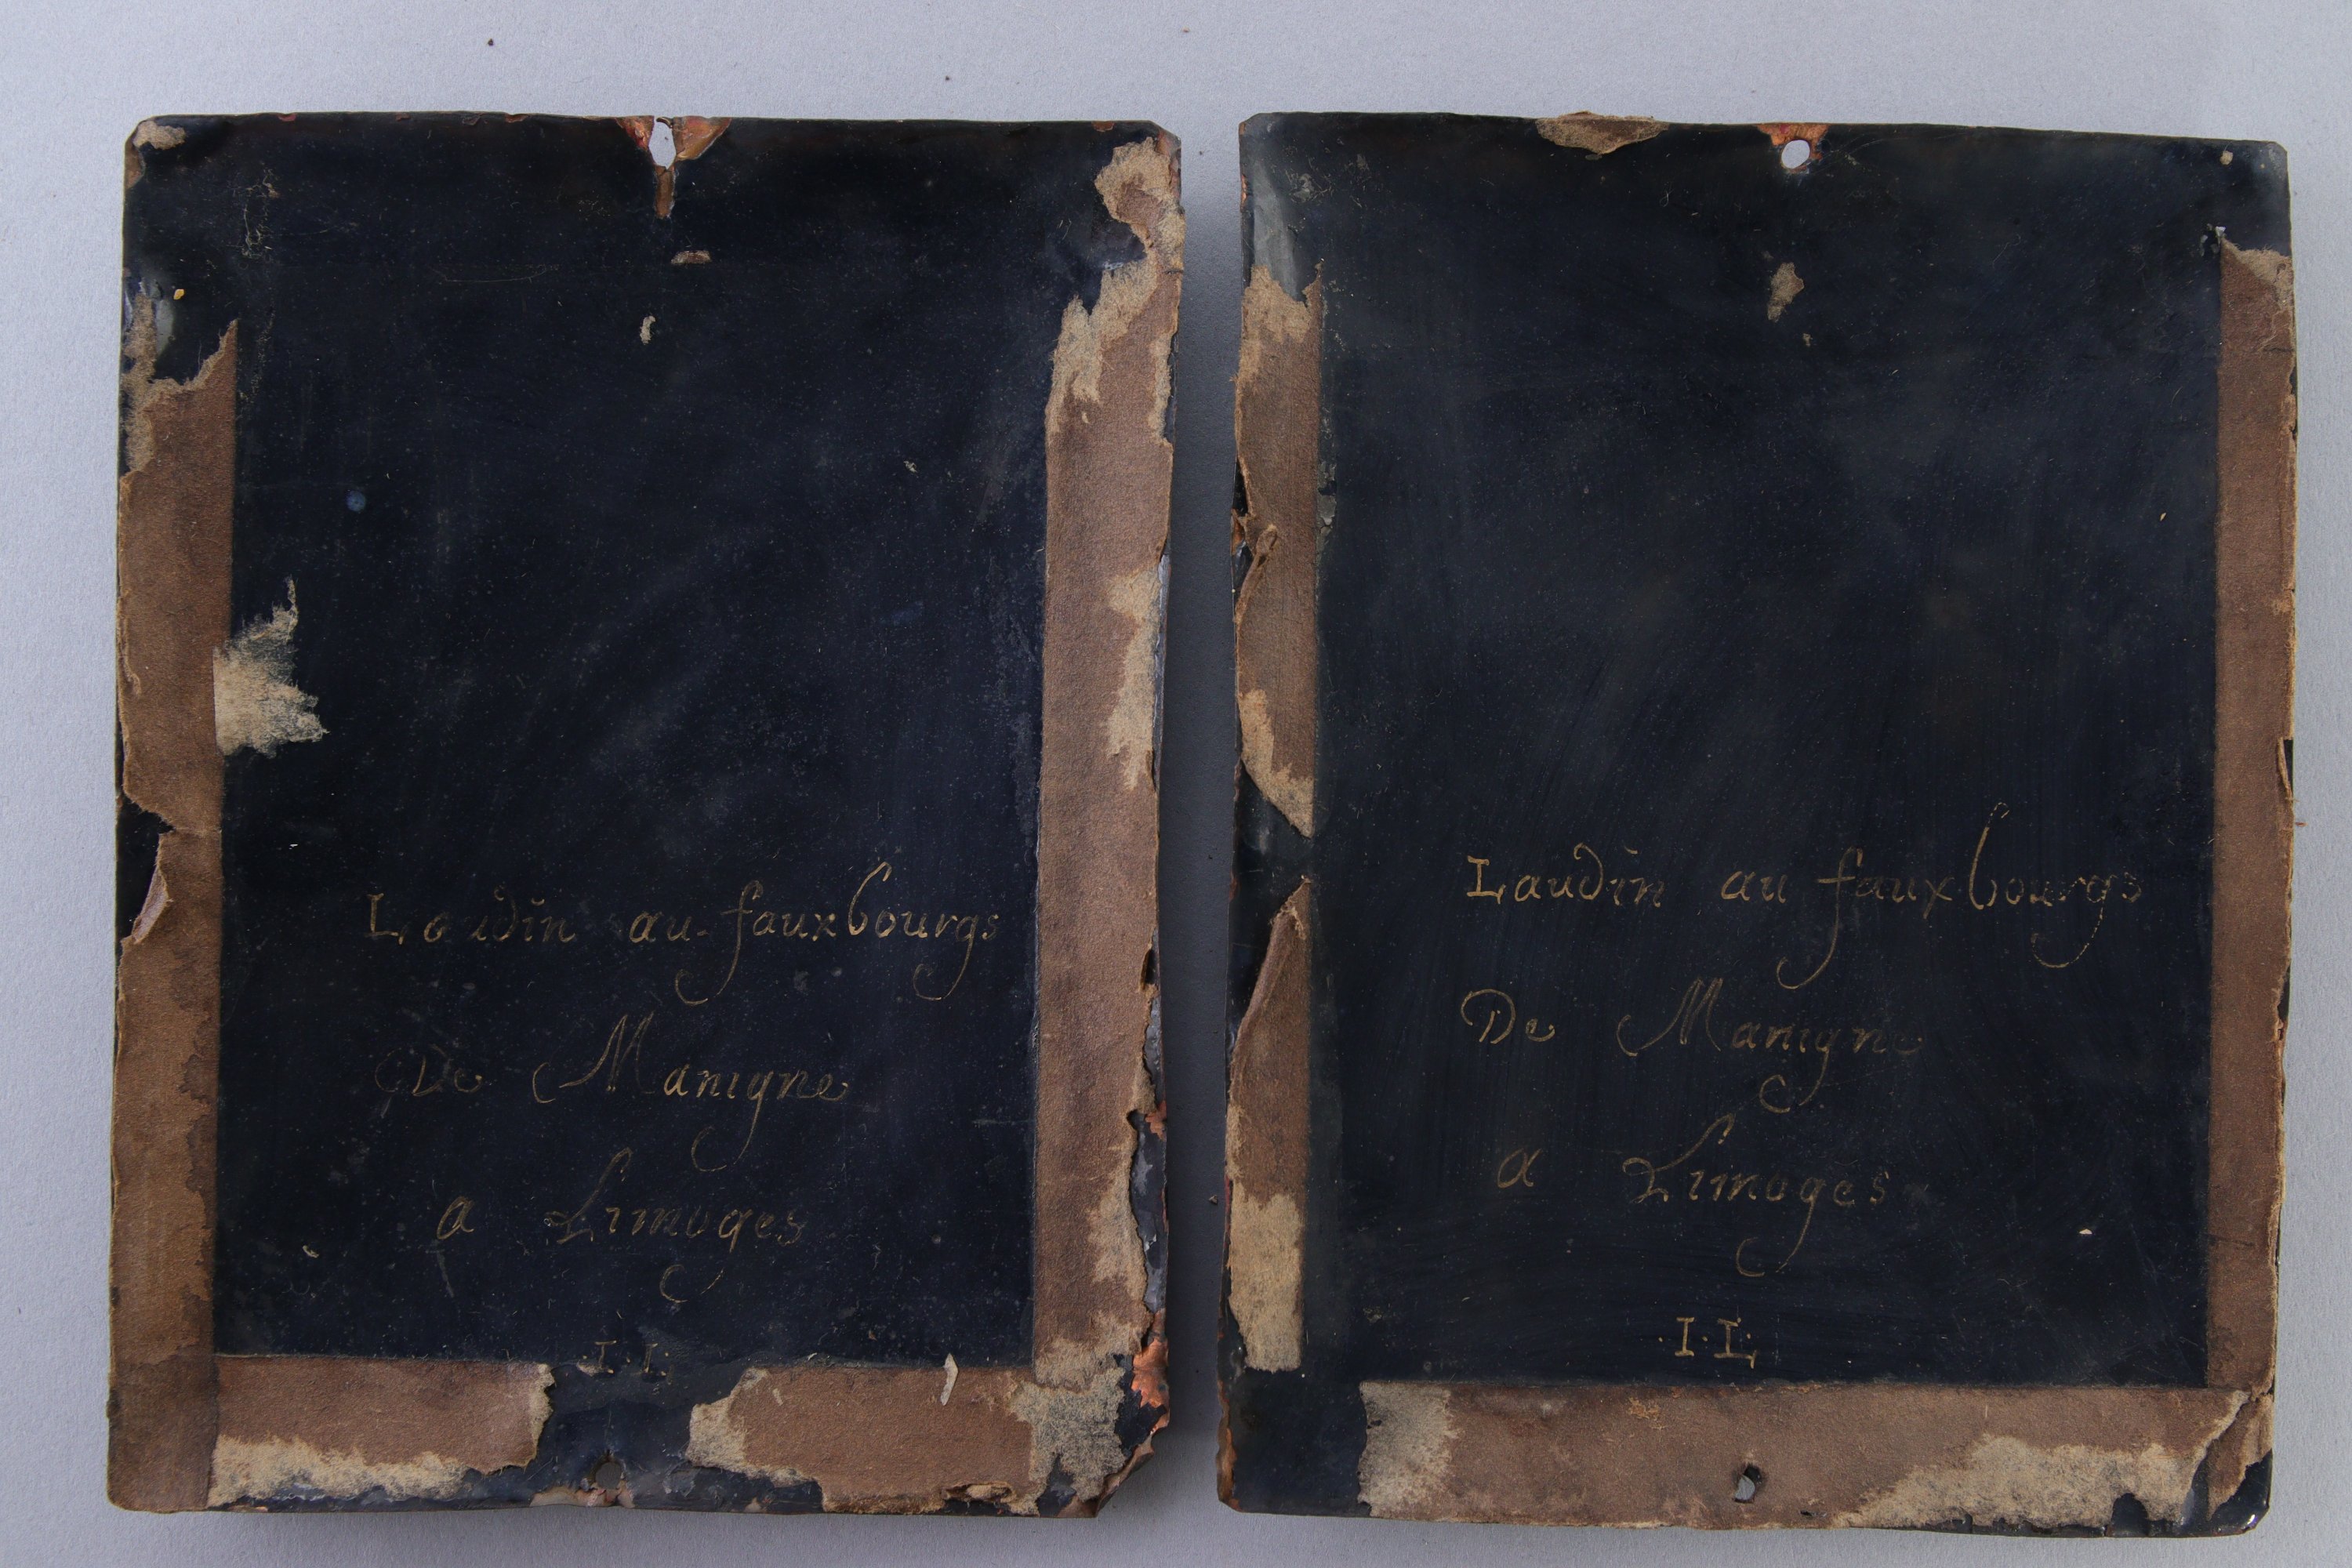 Laudin au fauxbourgs
De Manigne
a Limoges
·I·L·
Laudin au fauxbourgs
De Manigne
a Limoges
·I·L·